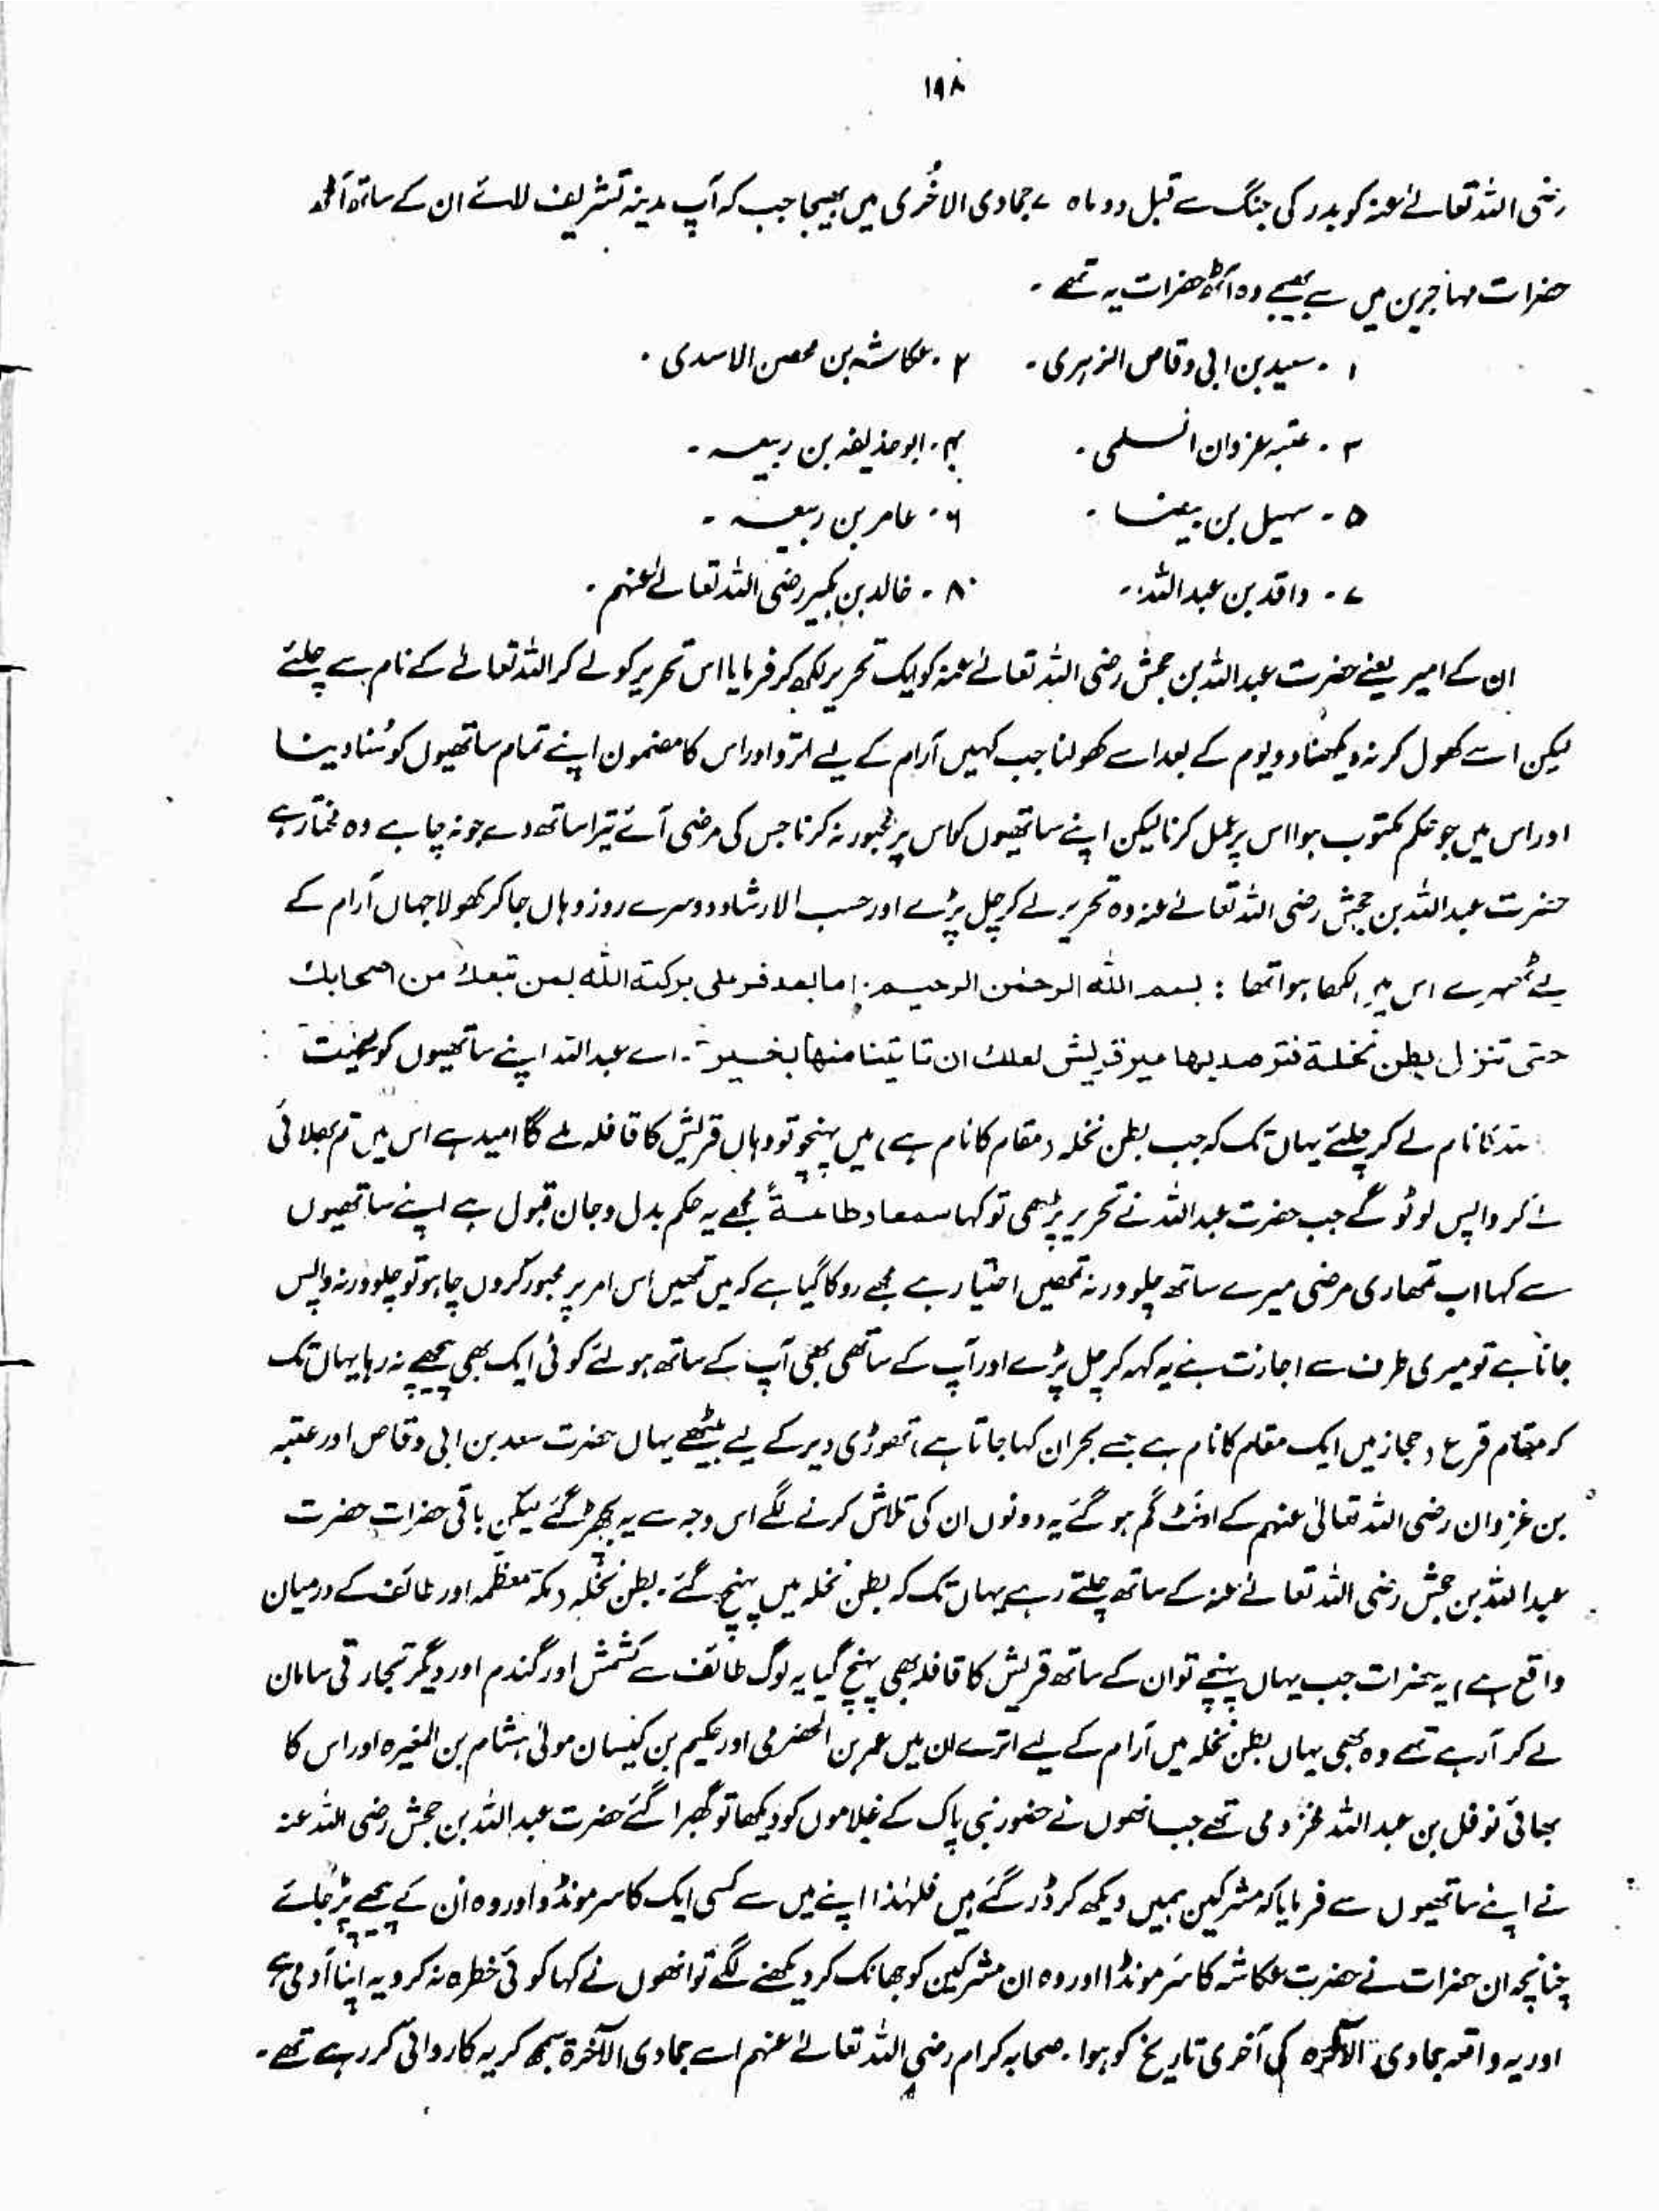 ۱۹۸
رضی اللہ تعالےٰ عنہ کو بدر کی جنگ سے قبل دو ماہ ے جمادی الاخُریٰ میں بھیجا جب کہ آپ مدینہ تشریف لائے ان کے ساتھ آٹھ
حضرات مہاجرین میں سے بھیجے وہ آٹھ حضرات یہ تھے ۔
۱ ۔ سعید بن ابی وقاص الزہری ۔ ۲ ۔ عکاشہ بن محصن الاسدی ۔
۳ ۔ عتبہ غزوان السلمی ۔ ۴ ۔ ابو حذیفہ بن ربیعہ ۔
۵ ۔ سہیل بن بیضا ۔ ۶ ۔ عامر بن ربیعہ ۔
۷ ۔ واقد بن عبداللہ ۔ ۸ ۔ خالد بن بکیر رضی اللہ تعالےٰ عنہم ۔
ان کے امیر یعنے حضرت عبداللہ بن جحش رضی اللہ تعالےٰ عنہ کو ایک تحریر لکھ کر فرمایا اس تحریر کو لے کر اللہ تعالےٰ کے نام سے چلئے
لیکن اسے کھول کر نہ دیکھنا دو یوم کے بعد اسے کھولنا جب کہیں آرام کے لیے اترو اور اس کا مضمون اپنے تمام ساتھیوں کو سُنا دینا
اور اس میں جو حکم مکتوب ہوا اس پر عمل کرنا لیکن اپنے ساتھیوں کو اس پر مجبور نہ کرنا جس کی مرضی آئے تیرا ساتھ دے جو نہ چاہے وہ مختار ہے
حضرت عبداللہ بن جحش رضی اللہ تعالےٰ عنہ وہ تحریر لے کر چل پڑے اور حسب الارشاد دوسرے روز وہاں جا کر کھولا جہاں آرام کے
لیے ٹھہرے اس میں لکھا ہوا تھا : بسم اللہ الرحمٰن الرحیم : اما بعد فسر علی برکتہ اللہ بمن تبعک من اصحابک
حتی تنزل بطن نخلۃ فترصد بھا عیر قریش لعلک ان تاتینا منھا بخیر ۔ اے عبداللہ اپنے ساتھیوں کو
کا نام لے کر چلئے یہاں تک کہ جب بطن نخلہ (مقام کا نام ہے) میں پہنچو تو وہاں قریش کا قافلہ ملے گا امید ہے اس میں تم بھلائی
لے کر واپس لوٹو گے جب حضرت عبداللہ نے تحریر پڑھی تو کہا سمعا وطاعۃً مجھے یہ حکم بدل و جان قبول ہے اپنے ساتھیوں
سے کہا اب تمھاری مرضی میرے ساتھ چلو ورنہ تمھیں اختیار ہے مجھے روکا گیا ہے کہ میں تمھیں اس امر پر مجبور کروں چاہو تو چلو ورنہ واپس
جانا ہے تو میری طرف سے اجازت ہے یہ کہہ کر چل پڑے اور آپ کے ساتھی بھی آپ کے ساتھ ہو لئے کوئی ایک بھی پیچھے نہ رہا یہاں تک
کہ مقام قرع (حجاز میں ایک مقام کا نام ہے جسے بحران کہا جاتا ہے) تھوڑی دیر کے لیے بیٹھے یہاں حضرت سعد بن ابی وقاص اور عتبہ
بن غزوان رضی اللہ تعالیٰ عنہم کے اونٹ گم ہو گئے یہ دونوں ان کی تلاش کرنے لگے اس وجہ سے یہ بچھڑ گئے لیکن باقی حضرات حضرت
عبداللہ بن جحش رضی اللہ تعالےٰ عنہ کے ساتھ چلتے رہے یہاں تک کہ بطن نخلہ میں پہنچ گئے ۔ بطن نخلہ (مکہ معظمہ اور طائف کے درمیان
واقع ہے) یہ حضرات جب یہاں پہنچے تو ان کے ساتھ قریش کا قافلہ بھی پہنچ گیا یہ لوگ طائف سے کشمش اور گندم اور دیگر تجارتی سامان
لے کر آرہے تھے وہ بھی یہاں بطن نخلہ میں آرام کے لیے اترے ان میں عمر بن الحضرمی اور حکیم بن کیسان مولیٰ ہشام بن المغیرہ اور اس کا
بھائی نوفل بن عبداللہ مخزومی تھے جب انھوں نے حضور نبی پاک کے غلاموں کو دیکھا تو گھبرا گئے حضرت عبداللہ بن جحش رضی اللہ عنہ
نے اپنے ساتھیوں سے فرمایا کہ مشرکین ہمیں دیکھ کر ڈر گئے ہیں فلہٰذا اپنے میں سے کسی ایک کا سر مونڈو اور وہ ان کے پیچھے پڑ جائے
چنانچہ ان حضرات نے حضرت عکاشہ کا سَر مونڈا اور وہ ان مشرکین کو جھانک کر دیکھنے لگے تو انھوں نے کہا کوئی خطرہ نہ کرو یہ اپنا آدمی ہے
اور یہ واقعہ جمادی الآخرہ کی آخری تاریخ کو ہوا ۔ صحابہ کرام رضی اللہ تعالےٰ عنہم اسے جمادی الآخرۃ سمجھ کر یہ کاروائی کر رہے تھے ۔